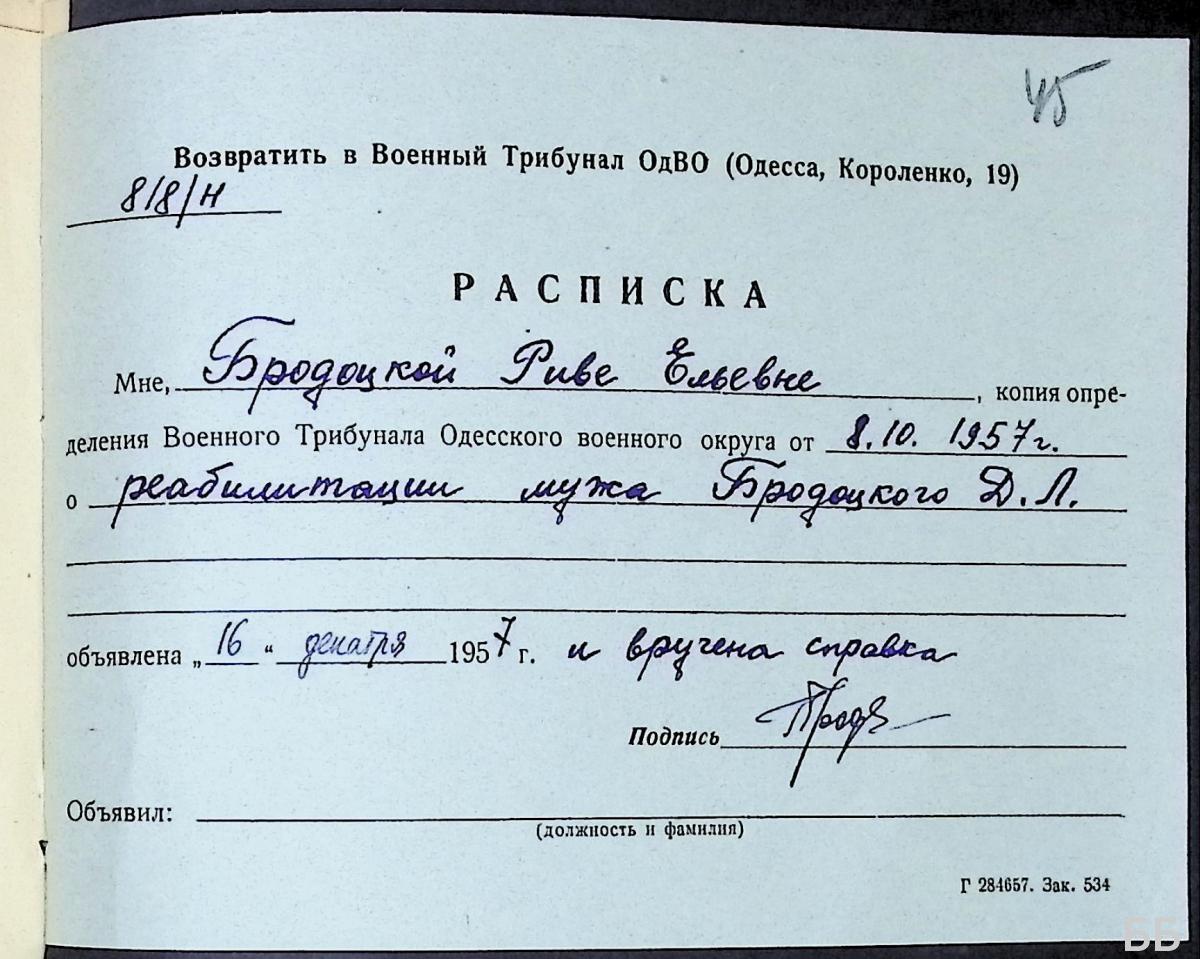 45
Возвратить в Военный Трибунал ОдВО (Одесса, Короленко, 19)
8/8/Н
РАСПИСКА
Мне, Бродоцкой Риве Ельевне, копия опре-
деления Военного Трибунала Одесского военного округа от 8.10. 1957г.
о реабилитации мужа Бродоцкого Д.Л.
объявлена „16" декатря 1957 г. и вручена справка
Подпись
Объявил:
(должность и фамилия)
Г 284657. Зак. 534
ББ